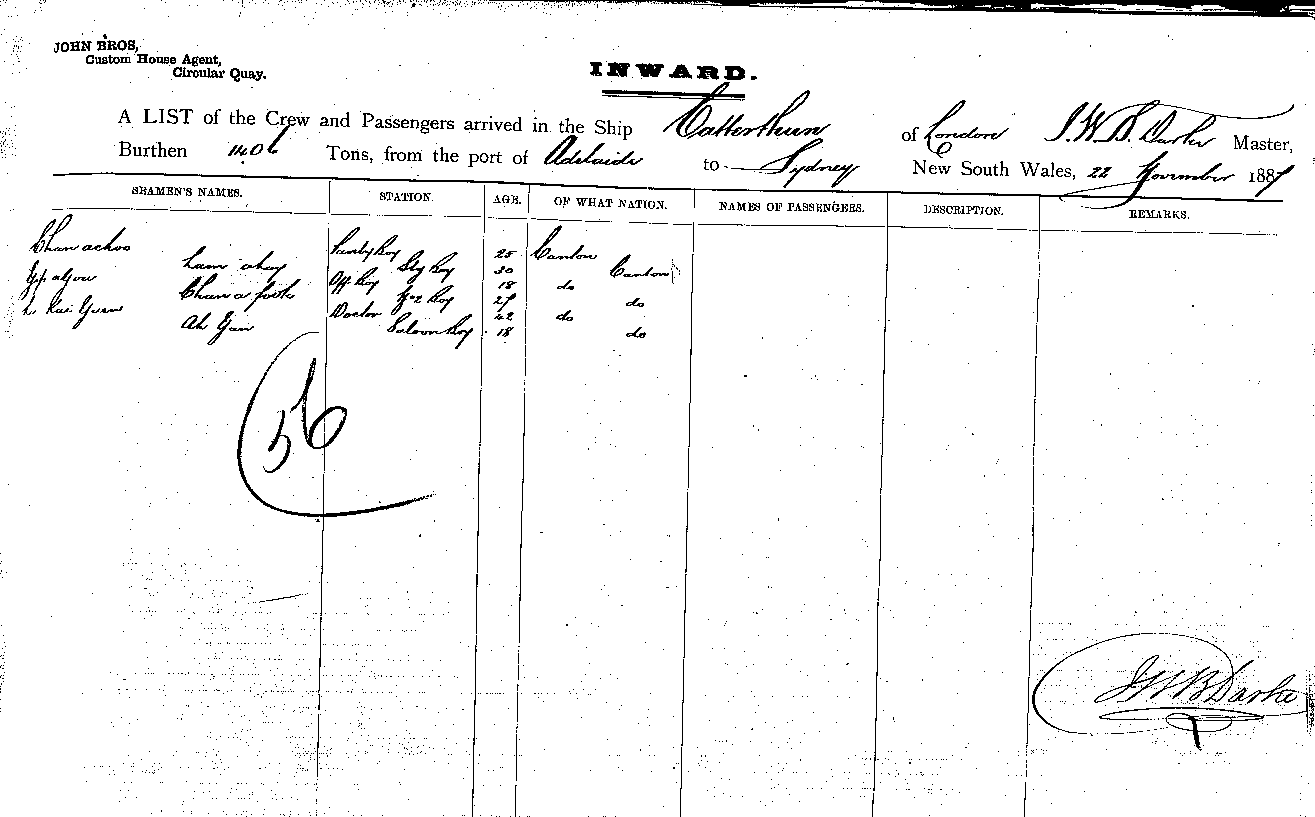 JOHN BROS,
Custom House Agent,
Circular Quay.
INWARD.
A LIST of the Crew and Passengers arrived in the Ship Catterthun of London J. W. B. Darke Master,
Burthen 1406 Tons, from the port of Adelaide to Sydney New South Wales, 22 November 1887
SEAMEN'S NAMES. STATION. AGE. OF WHAT NATION. NAMES OF PASSENGERS. DESCRIPTION. REMARKS.
Chan achoo 25 Canton
Lam ahoy Boy 30 Canton
Yip Off Boy 18 do
Chan a fook Boy 27 do
Doctor 42 do
Ah Saloon Boy 18 do
56
J W B Darke